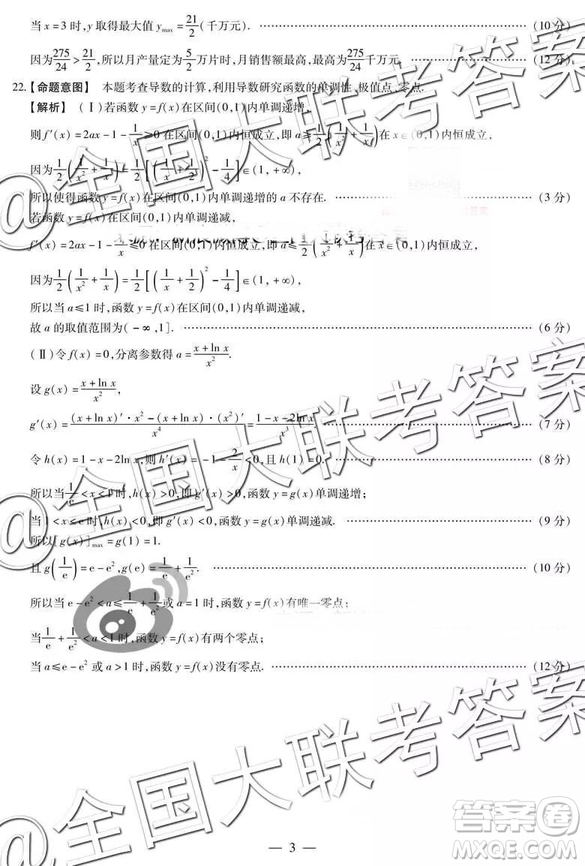 当 x = 3 时, y 取得最大值 y_max = 21/2 (千万元). (10 分)
因为 275/24 > 21/2, 所以月产量定为 5/2 万片时, 月销售额最高, 最高为 275/24 千万元. (12 分)
22.【命题意图】 本题考查导数的计算, 利用导数研究函数的单调性、极值点、零点.
【解析】 (Ⅰ) 若函数 y = f(x) 在区间 (0,1) 内单调递增,
则 f′(x) = 2ax − 1 − 1/x ≥ 0 在区间 (0,1) 内恒成立, 即 a ≥ 在 x ∈ (0,1) 内恒成立,
因为 1/2(1/x² + 1/x) = 1/2[( )² − 1/4] ∈ (1, +∞),
所以使得函数 y = f(x) 在区间 (0,1) 内单调递增的 a 不存在. (3 分)
若函数 y = f(x) 在区间 (0,1) 内单调递减,
f′(x) = 2ax − 1 − 1/x ≤ 0 在区间 (0,1) 内恒成立, 即 a ≤ 1/2(1/x² + 1/x) 在 x ∈ (0,1) 内恒成立,
因为 1/2(1/x² + 1/x) = 1/2[(1/x + 1/2)² − 1/4] ∈ (1, +∞),
所以当 a ≤ 1 时, 函数 y = f(x) 在区间 (0,1) 内单调递减,
故 a 的取值范围为 (−∞, 1]. (6 分)
(Ⅱ) 令 f(x) = 0, 分离参数得 a = (x + ln x)/x².
设 g(x) = (x + ln x)/x²,
g′(x) = ((x + ln x)′·x² − (x + ln x)·(x²)′)/x⁴ = (1 − x − 2ln x)/x³. (7 分)
令 h(x) = 1 − x − 2ln x, 则 h′(x) = −1 − 2/x < 0, 且 h(1) = 0. (8 分)
所以当 1/e < x < 1 时, h(x) > 0, 即 g′(x) > 0, 函数 y = g(x) 单调递增;
当 1 < x ≤ e 时, h(x) < 0, 即 g′(x) < 0, 函数 y = g(x) 单调递减. (9 分)
所以 [g(x)]_max = g(1) = 1.
且 g(1/e) = e − e², g(e) = 1/e + 1/e². (10 分)
所以当 e − e² < a ≤ 1/e + 1/e² 或 a = 1 时, 函数 y = f(x) 有唯一零点;
当 1/e + 1/e² < a < 1 时, 函数 y = f(x) 有两个零点;
当 a ≤ e − e² 或 a > 1 时, 函数 y = f(x) 没有零点. (12 分)
— 3 —
@全国大联考答案
@全国大联考答案
@全国大联考答案
答案卷
MXQE.COM